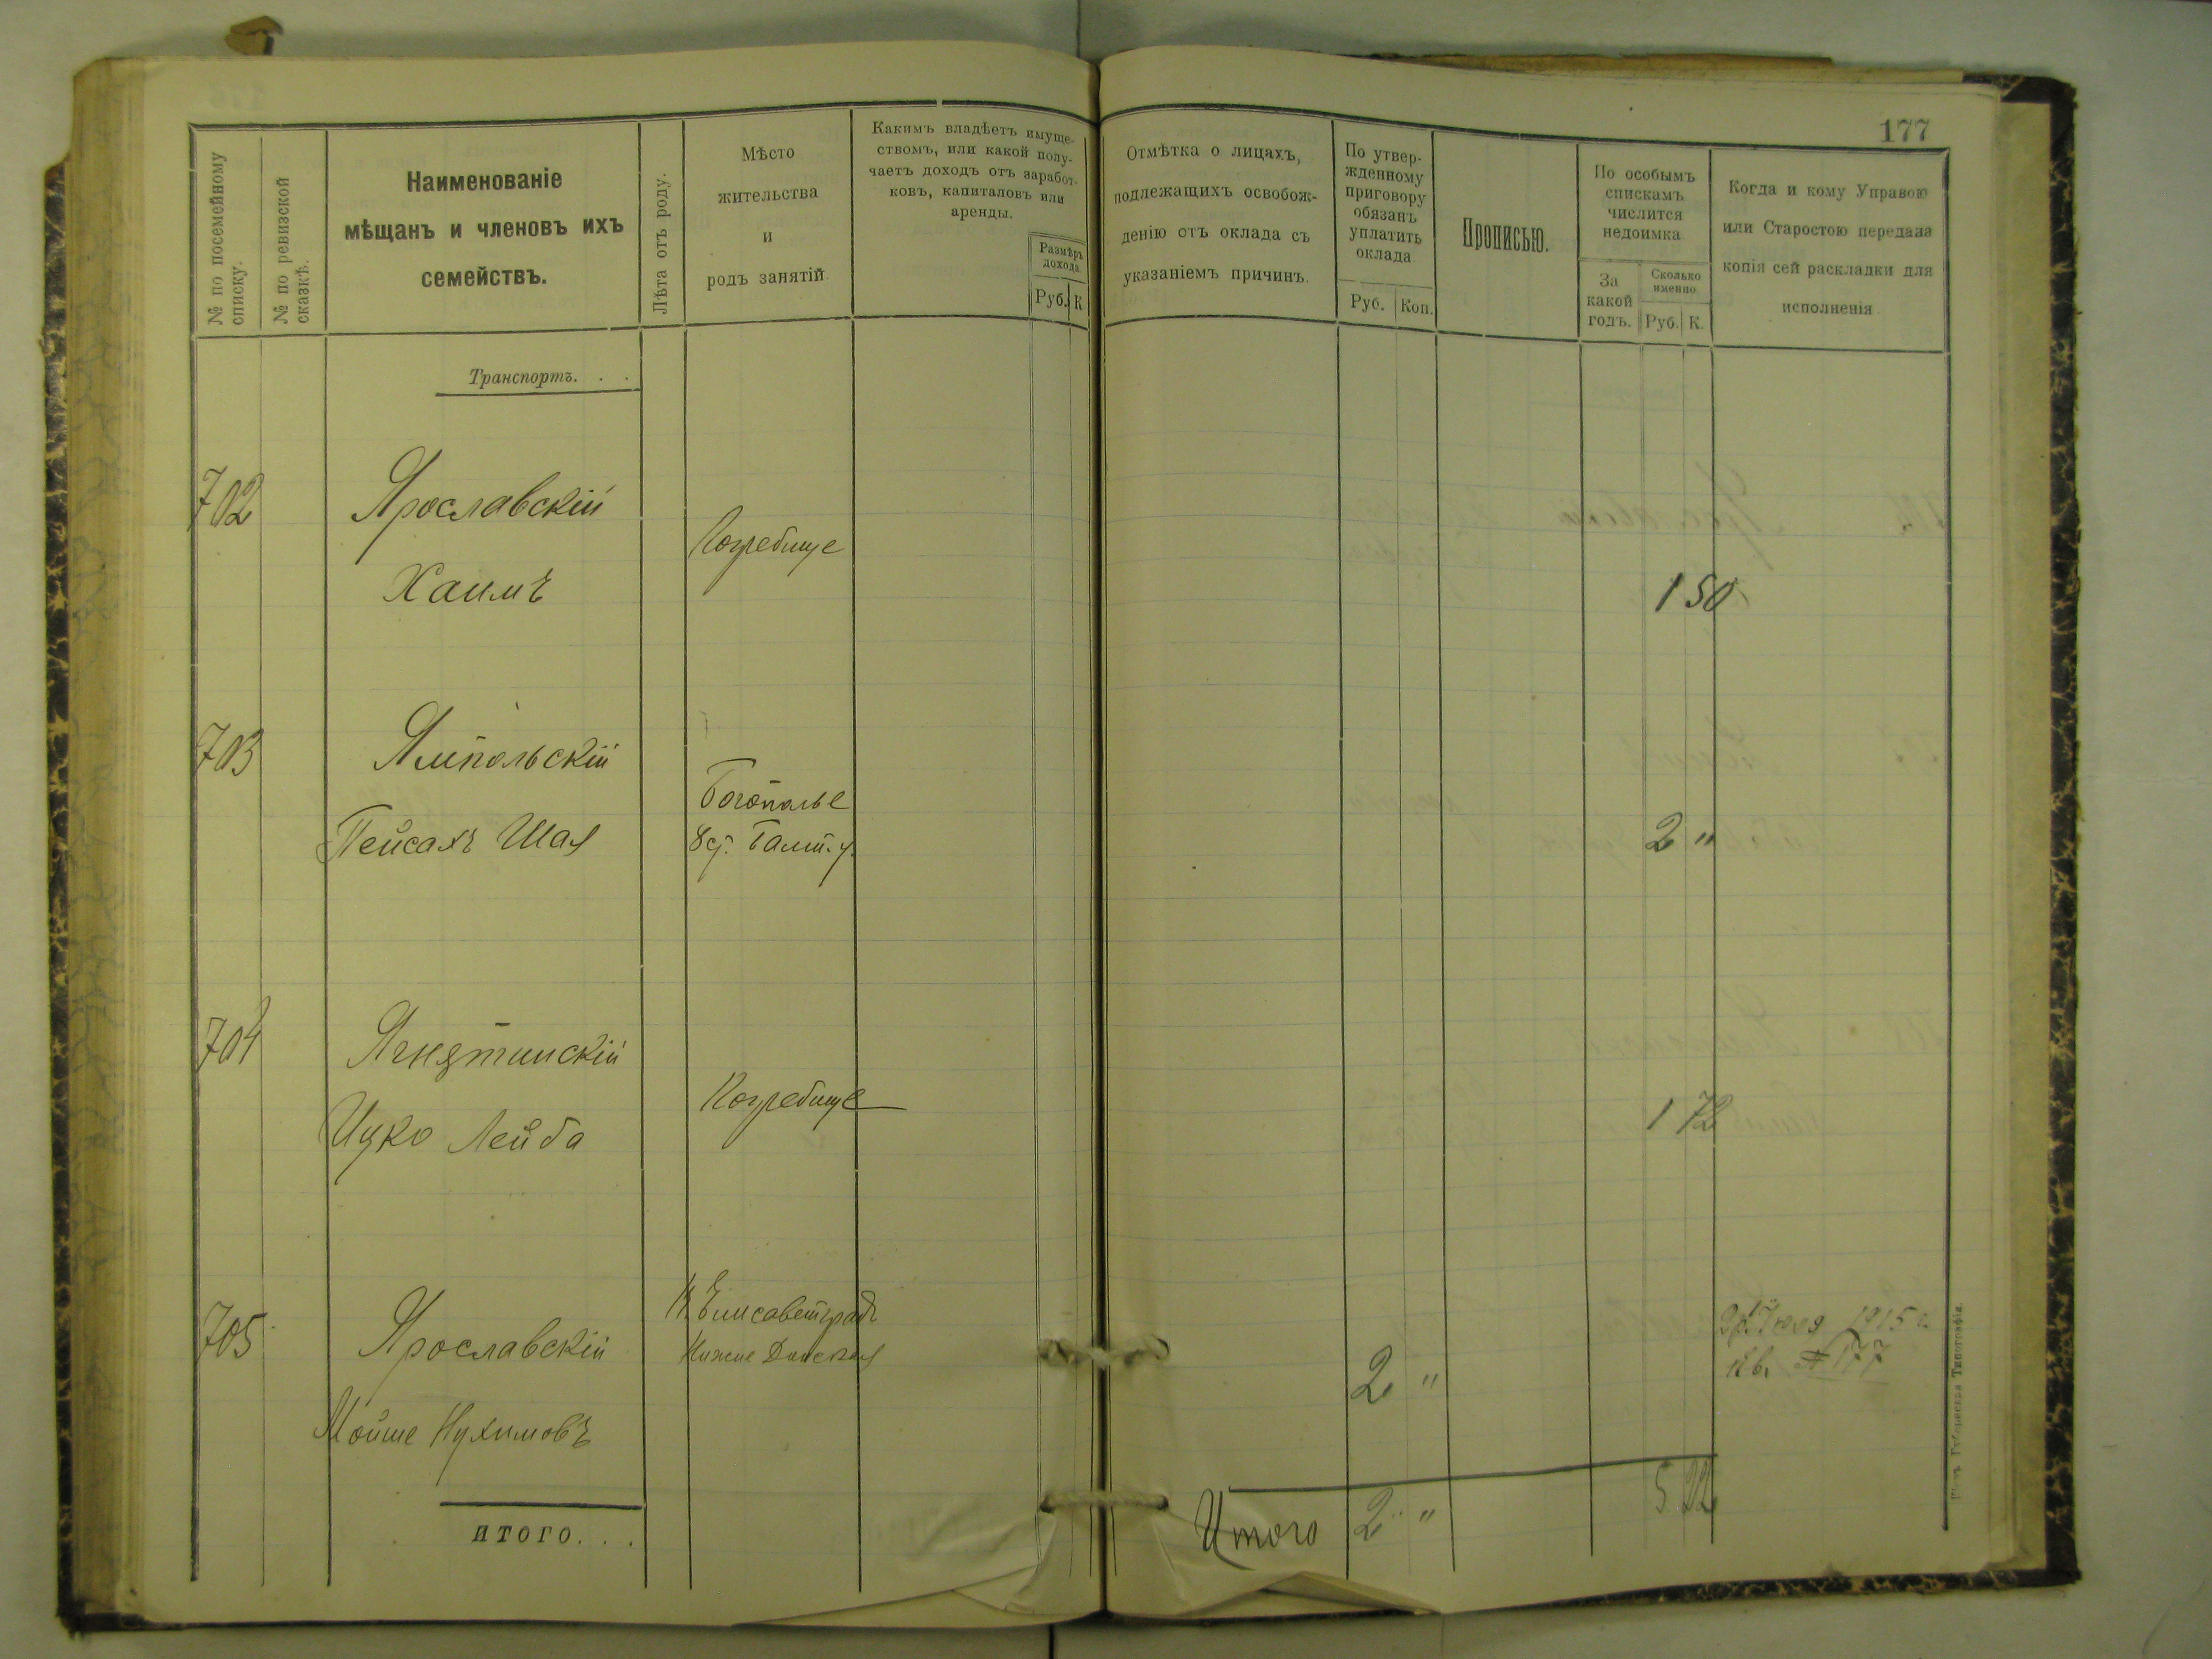 177
№ по посемейному
списку.
№ по ревизской
сказкѣ.
Наименованіе
мѣщанъ и членовъ ихъ
семействъ.
Лѣта отъ роду.
Мѣсто
жительства
и
родъ занятій
Какимъ владѣетъ имуще-
ствомъ, или какой полу-
чаетъ доходъ отъ заработ-
ковъ, капиталовъ или
аренды.
Размѣръ
дохода
Руб. К
Отмѣтка о лицахъ,
подлежащихъ освобож-
денію отъ оклада съ
указаніемъ причинъ.
По утвер-
жденному
приговору
обязанъ
уплатить
оклада
Руб. Коп.
Прописью.
По особымъ
спискамъ
числится
недоимка
За
какой
годъ.
Сколько
именно.
Руб. К.
Когда и кому Управою
или Старостою передана
копія сей раскладки для
исполненія
Транспортъ. . .
702
Ярославскій
Хаимъ
Погребище
1 50
703
Ямпольскій
Пейсахъ Шая
Богополье
Балт. у.
2 "
704
Ягнятинскій
Ицко Лейба
Погребище
1 72
705
Ярославскій
Мойше Нухимовъ
Елисаветградъ
Нижне Донская
2 "
1915 г.
кв. № 177
итого. . .
Итого 2 " 5 22
Типографія.